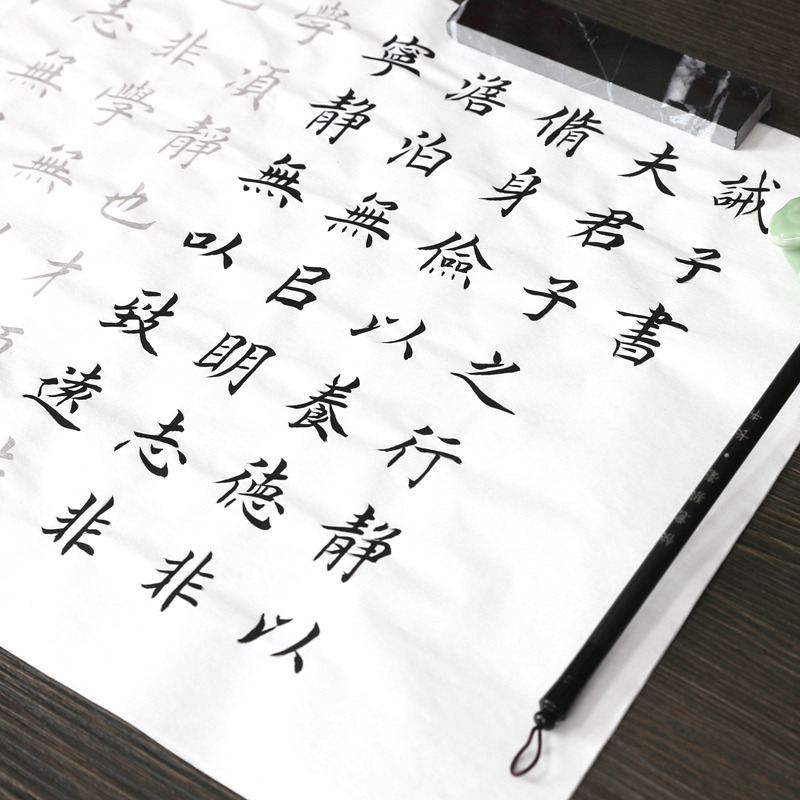 誡子書
夫君子之行靜以
脩身儉以養德非
澹泊無㠯眀志非
寧靜無以致遠
學須靜也才
非學無
志無